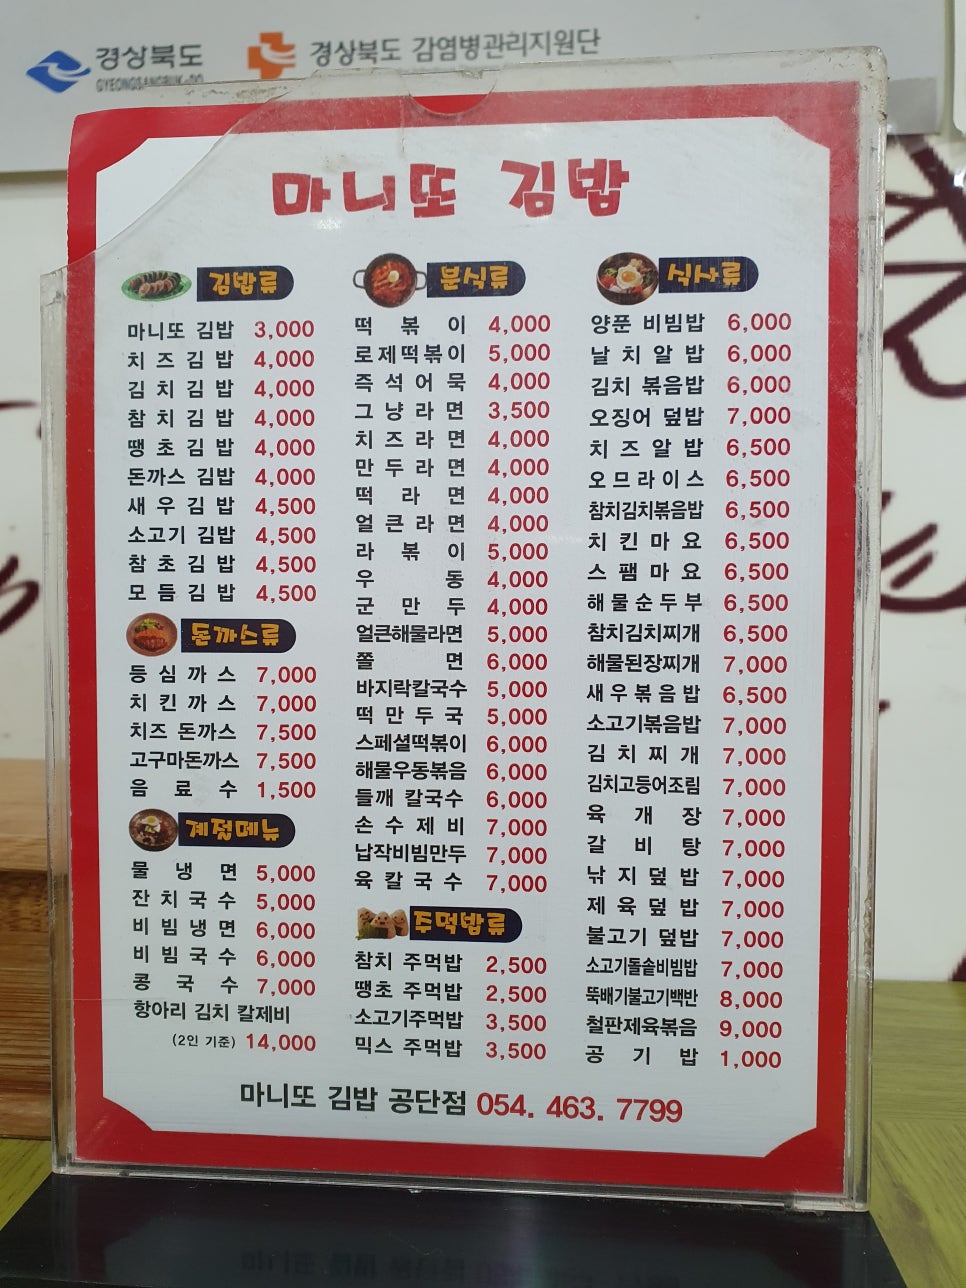 경상북도
GYEONGSANGBUK-DO
경상북도 감염병관리지원단
마니또 김밥
김밥류
마니또 김밥 3,000
치즈김밥 4,000
김치김밥 4,000
참치김밥 4,000
땡초김밥 4,000
돈까스 김밥 4,000
새우김밥 4,500
소고기 김밥 4,500
참초김밥 4,500
모듬김밥 4,500
돈까스류
등심까스 7,000
치킨까스 7,000
치즈 돈까스 7,500
고구마돈까스 7,500
음료수 1,500
계절메뉴
물냉면 5,000
잔치국수 5,000
비빔냉면 6,000
비빔국수 6,000
콩국수 7,000
항아리 김치 칼제비
(2인 기준) 14,000
분식류
떡볶이 4,000
로제떡볶이 5,000
즉석어묵 4,000
그냥라면 3,500
치즈라면 4,000
만두라면 4,000
떡라면 4,000
얼큰라면 4,000
라볶이 5,000
우동 4,000
군만두 4,000
얼큰해물라면 5,000
쫄면 6,000
바지락칼국수 5,000
떡만두국 5,000
스페셜떡볶이 6,000
해물우동볶음 6,000
들깨 칼국수 6,000
손수제비 7,000
납작비빔만두 7,000
육칼국수 7,000
주먹밥류
참치 주먹밥 2,500
땡초 주먹밥 2,500
소고기주먹밥 3,500
믹스 주먹밥 3,500
식사류
양푼 비빔밥 6,000
날치알밥 6,000
김치 볶음밥 6,000
오징어 덮밥 7,000
치즈알밥 6,500
오므라이스 6,500
참치김치볶음밥 6,500
치킨마요 6,500
스팸마요 6,500
해물순두부 6,500
참치김치찌개 6,500
해물된장찌개 7,000
새우볶음밥 6,500
소고기볶음밥 7,000
김치찌개 7,000
김치고등어조림 7,000
육개장 7,000
갈비탕 7,000
낚지덮밥 7,000
제육덮밥 7,000
불고기 덮밥 7,000
소고기돌솥비빔밥 7,000
뚝배기불고기백반 8,000
철판제육볶음 9,000
공기밥 1,000
마니또 김밥 공단점 054. 463. 7799